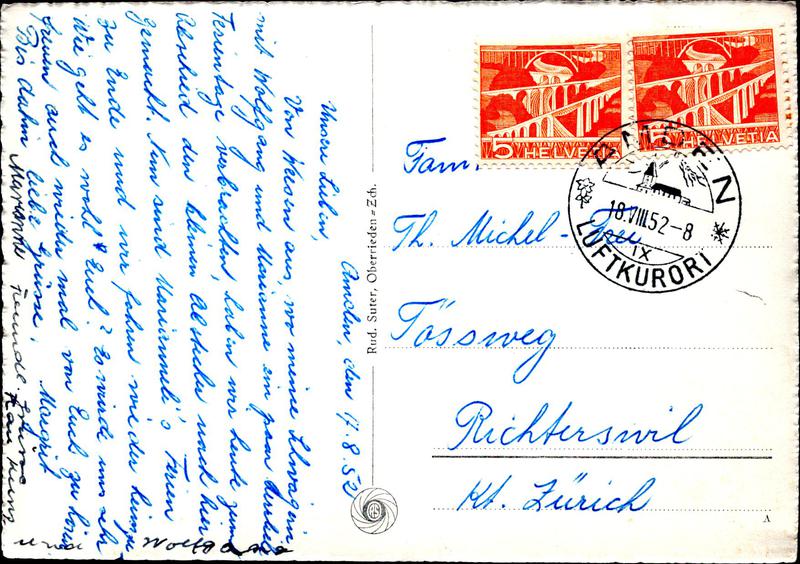 Unsere Lieben,
Amden, den 17.8.52
Von Weesen aus, wo meine Schwägerin
mit Wolfgang und Marianne ein paar herrliche
Ferientage verbrachten, haben wir heute zum
Abschied den kleinen Abstecher nach hier
gemacht. Nun sind Marianneli's Ferien
zu Ende und wir fahren wieder heimzu
Wie geht es wohl Euch? Es würde uns sehr
freuen auch wieder mal von Euch zu hören
Bis dahin liebe Grüsse, Margrit
Marianne Freundl. Grüsse
und Wolfgang
Rud. Suter, Oberrieden-Zch.
5 HELVETIA
5 HELVETIA
AMDEN
18.VIII.52-8
IX
LUFTKURORT
Fam.
Th. Michel-
Tössweg
Richterswil
Kt. Zürich
A